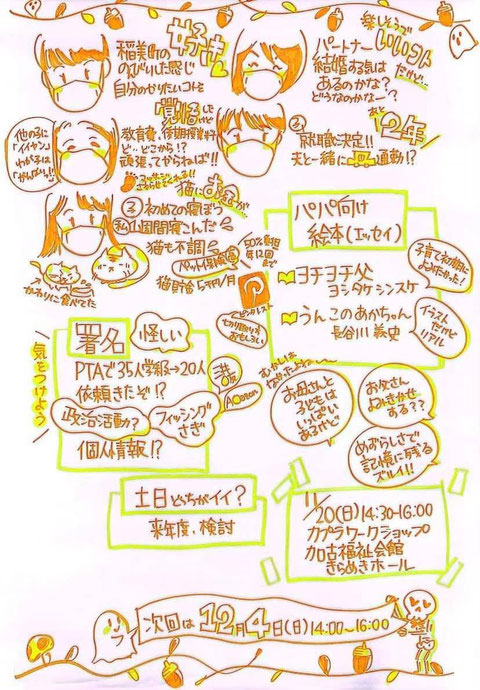 稲美町の
のんびりした感じ
好き
自分のやりたいコトを
楽しそうで
いいコト
だけど…
パートナー
結婚する気は
あるのかな?
どうなのかな〜?
他の子に
「イイヤン」
わが子は
「がんばりぃ!!」
覚悟したけど
教育費、後期授業料
ど…どこから!?
頑張ってかねば!!
あと12年
就職決定!!
夫と一緒に 通勤!?
猫にお金が…
初めての寝ぼう
私1週間寝こんだ
猫も不調
ペット保険
50%負担
年12回
まで
猫貯金
かわりに食べてた
パパ向け
絵本(エッセイ)
ヨチヨチ父
ヨシタケシンスケ
うんこのあかちゃん
長谷川義史
子育て初期に
よみたかった!
イラスト
だけど
リアル
ピンタレスト
おもしろい
気をつけよう
署名
怪しい
PTAで35人学級→20人
依頼きたぞ!?
政治活動?
フィッシング
さぎ
個人情報!?
三井
Amazon
お母さんと
子どもは
いっぱい
あるけど
お父さん
よみきかせ
する??
めずらしさで
記憶に残る
ズルイ!!
土日どっちがイイ?
来年度、検討
11/20(日)14:30-16:00
カプラワークショップ
加古福祉会館
きらめきホール
次回は 12月4日(日)14:00〜16:00